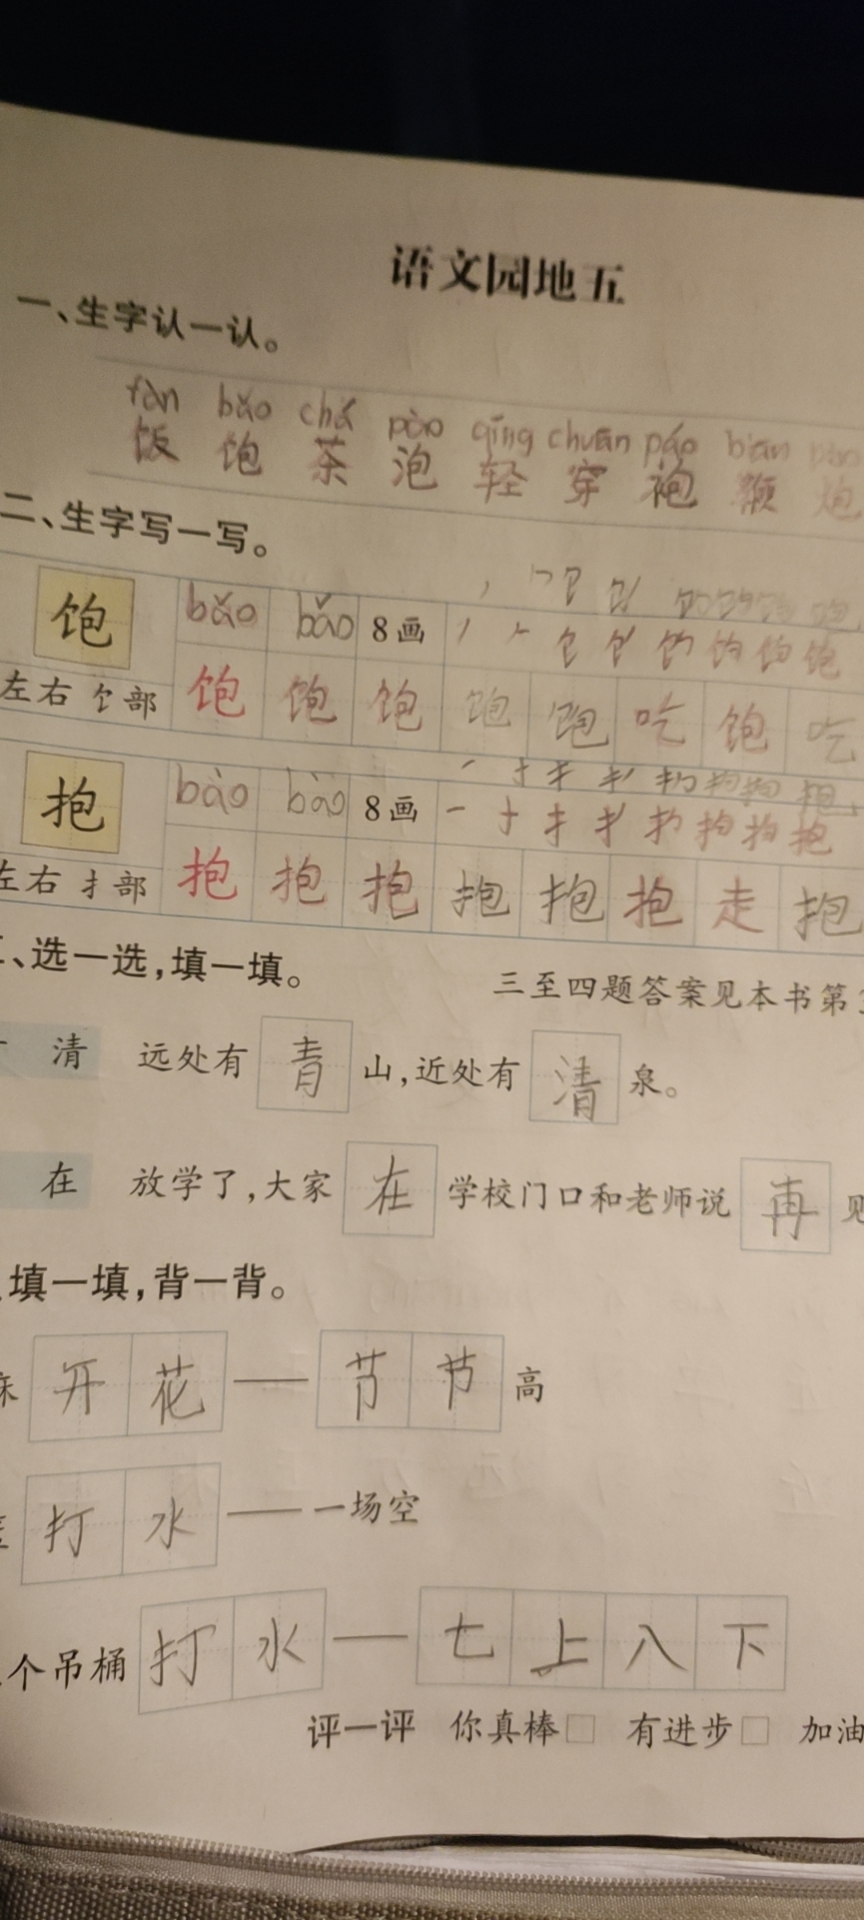 语文园地五
一、生字认一认。
fàn bǎo chá pào qīng chuān páo biān
饭 饱 茶 泡 轻 穿 袍 鞭 炮
二、生字写一写。
饱 bǎo bǎo 8画
左右 饣部 饱 饱 饱 饱 饱 吃 饱 吃
抱 bào bào 8画
左右 扌部 抱 抱 抱 抱 抱 抱 走 抱
、选一选,填一填。
三至四题答案见本书第
清 远处有 青 山,近处有 清 泉。
在 放学了,大家 在 学校门口和老师说 再 见
填一填,背一背。
开 花 —— 节 节 高
打 水 —— 一场空
个吊桶 打 水 —— 七 上 八 下
评一评 你真棒□ 有进步□ 加油